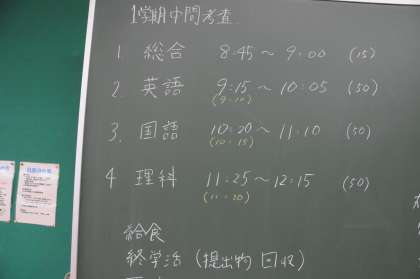 1学期中間考査
1. 総合 8:45～9:00 (15)
2. 英語 9:15～10:05 (50)
(9:10)
3. 国語 10:20～11:10 (50)
(10:15)
4 理科 11:25～12:15 (50)
(11:20)
給食
終学活 (提出物 回収)